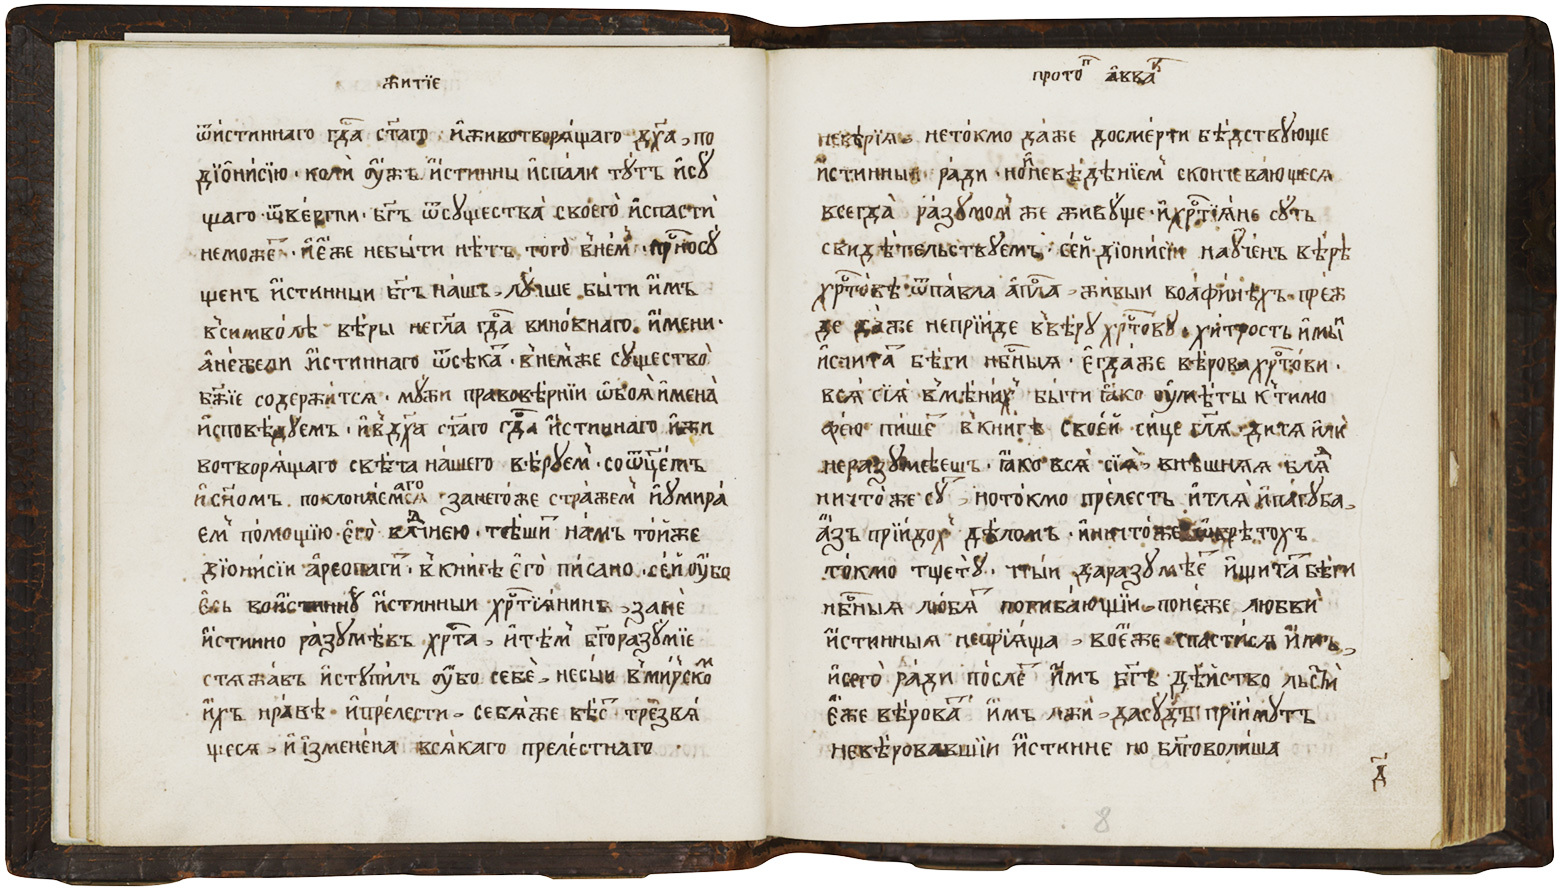 житїе
ѿи́стиннаго гд҃а ст҃аго и҆животворѧ́щаго дх҃а, по
дїѡни́сїю. колѝ ѹ҆́жъ и҆́стинны и҆спа́ли ту́тъ и҆сꙋ́
щаго ѿве́ргли. бг҃ъ ѿсꙋщества̀ своего̀ и҆спастѝ
неможе. и҆є҆́же небы́ти нѣ́тъ того̀ внем.
щенъ и҆́стинныи бг҃ъ на́шъ, лꙋ́чше бы́ти и҆мъ
всимво́лѣ вѣ́ры негл҃а гд҃а вино́внаго и҆́мени.
а҆не́жели и҆́стиннаго ѿсѣка. вне́мже сꙋщество̀
бж҃їе содержи́тсѧ. мы́жи правовѣ́рнїи ѻ҆боѧ̀ и҆мена̀
и҆сповѣ́дꙋемъ. и҆вдх҃а ст҃аго гд҃а и҆́стиннаго и҆жи
вотворѧ́щаго свѣ́та на́шего вѣ́рꙋем. соѿц҃е́мъ
и҆сн҃омъ поклонѧ́емаго. занего́же стра́жем и҆ꙋмира́
ем по́мощїю є҆го̀ влⷣчнею. тѣшит на́мъ то́йже
дїѡни́сїи а҆реопаги. вкни́гѣ є҆го̀ пи́сано. се́й ѹ҆́бо
є҆́сь вои́стиннꙋ и҆́стинныи хрⷭтїѧ́нинъ, занѐ
и҆́стинно разꙋмѣ́въ хрⷭта̀, и҆тѣ́м бг҃ора́зꙋмїе
стѧжа́въ и҆стꙋпи́лъ ѹ҆́бо себѐ, несы́и вми́рско
и҆́хъ нра́вѣ и҆пре́лести, себѧ́же вѣ́сть тре́звѧ
щесѧ, и҆ и҆змене́на всѧ́каго преле́стнаго
прото аввак
невѣ́рїѧ, нето́кмо да́же досме́рти бѣ́дствꙋюще
и҆́стинныѧ ра́ди. но и҆невѣ́дѣнїем скончева́ющесѧ
всегда̀ ра́зꙋмом же живꙋ́ще. и҆хрⷭтїѧ́не сꙋ́ть
свидѣ́тельствꙋемъ. се́й дїѡни́сїи наꙋче́нъ вѣ́рѣ
хрⷭто́вѣ ѿпа́вла а҆пⷭла, живы́и воаѳи́нѣхъ преж
де да́же непрїи́де ввѣ́рꙋ хрⷭто́вꙋ. хи́трость и҆мы́и
и҆счита бѣ́ги нбⷭныѧ. є҆гда́же вѣ́рова хрⷭто́ви.
всѧ̀ сїѧ̀ вмѣни́х бы́ти ꙗ҆́ко ѹ҆мѣ́ты ктимо
ѳе́ю пи́ше вкни́гѣ свое́й си́це гл҃ѧ. дитѧ̀ и҆лѝ
неразꙋмѣ́ешъ. ꙗ҆́ко всѧ̀ сїѧ̀ внѣ́шнѧѧ блѧ
ничто́же сꙋ, ното́кмо пре́лесть и҆тлѧ̀ и҆па́гꙋба,
а҆́зъ прїидо́х дѣ́ломъ. и҆ничто́же ѡбрѣ́тохъ
то́кмо тщетꙋ̀. чты́и даразꙋмѣ́е и҆щита бѣ́ги
нбⷭныѧ лю́бѧ погиба́ющїи, поне́же любвѐ
и҆́стинныѧ непрїѧ́ша, воє҆́же спасти́сѧ и҆́мъ,
и҆сего̀ ра́ди после и҆мъ бг҃ъ дѣ́йство льсти
є҆́же вѣ́рова и҆́мъ лжи́, дасꙋ́дъ прїи́мꙋтъ
невѣ́ровавшїи и҆́стинне но бл҃говоли́ша
д҃
8